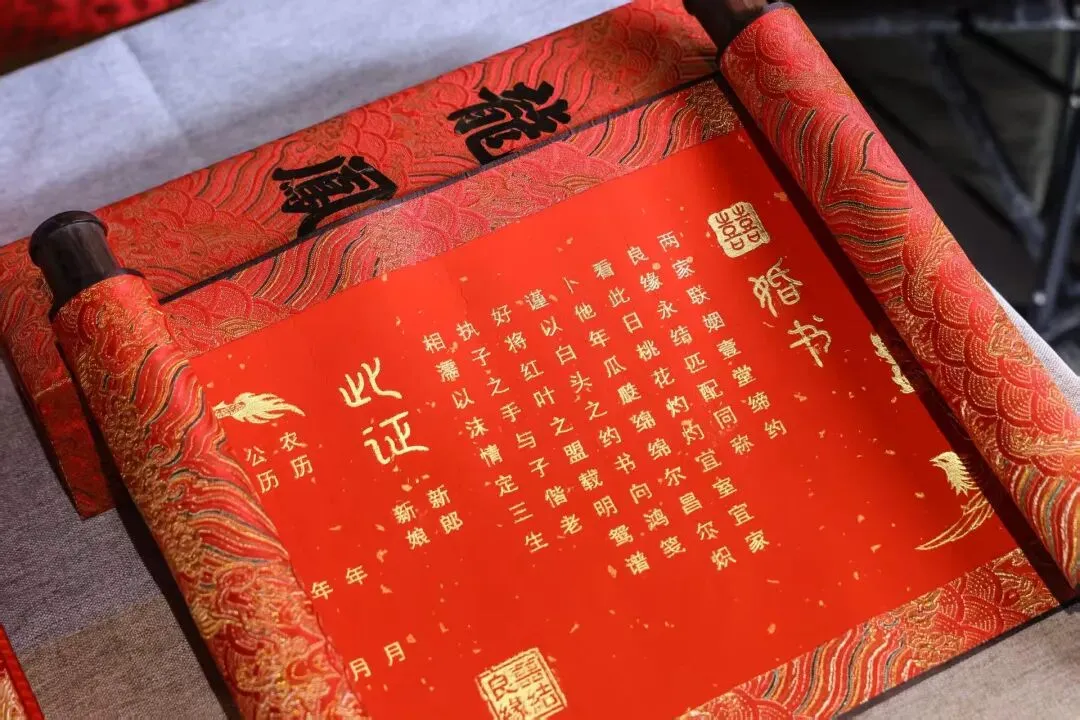 龍鳳
囍
婚书
两家联姻壹堂缔约
良缘永结匹配同称
看此日桃花灼灼宜室宜家
卜他年瓜瓞绵绵尔昌尔炽
谨以白头之约书向鸿笺
好将红叶之盟载明鸳谱
执子之手与子偕老
相濡以沫情定三生
此证
新郎
新娘
农历 年 月
公历 年 月
喜结
良缘